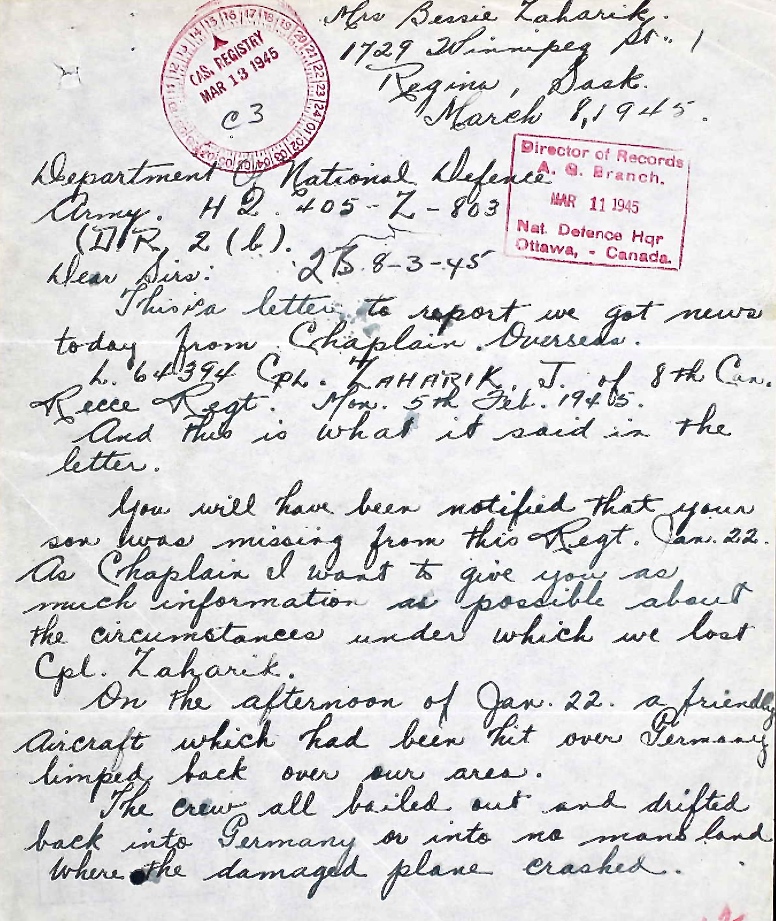 Mrs Bessie Zaharik.
1729 Winnipeg St.
Regina, Sask.
March 8, 1945.
CAS. REGISTRY
MAR 13 1945
C3
Director of Records
A. G. Branch.
MAR 11 1945
Nat. Defence Hqr
Ottawa, - Canada.
Department of National Defence
Army. H Q. 405-Z-803
(D R. 2 (b).
Dear Sirs: 2B 8-3-45
This is a letter to report we got news
today from Chaplain. Overseas.
L. 64394 CPL. ZAHARIK, J. of 8th Can.
Recce Regt. Mon. 5th Feb. 1945.
And this is what it said in the
letter.
You will have been notified that your
son was missing from this Regt. Jan. 22.
As Chaplain I want to give you as
much information as possible about
the circumstances under which we lost
Cpl. Zaharik.
On the afternoon of Jan. 22. a friendly
Aircraft which had been hit over Germany
limped back over our area.
The crew all bailed out and drifted
back into Germany or into no mans land
where the damaged plane crashed.